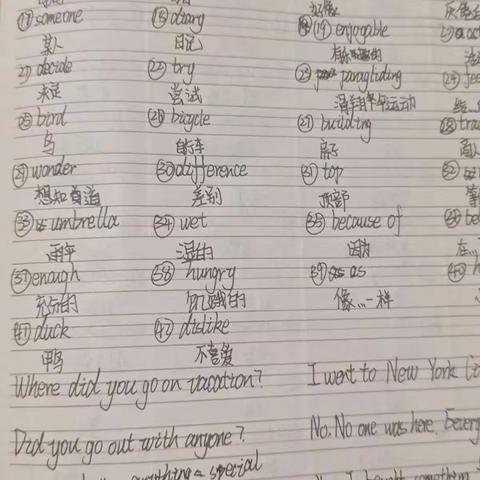 ⑰ someone ⑱ diary ⑲ enjoyable
某人 日记
㉑ decide ㉒ try ㉓ paragliding
决定 尝试 滑翔伞运动
㉕ bird ㉖ bicycle ㉗ building
鸟 自行车 房子
㉙ wonder ㉚ difference ㉛ top
想知道 差别 顶部
㉝ umbrella ㉞ wet ㉟ because of
雨伞 湿的 因为
㊲ enough ㊳ hungry ㊴ as
充分的 饥饿的 像...一样
㊶ duck ㊷ dislike
鸭 不喜爱
Where did you go on vacation? I went to New York
Did you go out with anyone? No. No one was here.
special I bought something